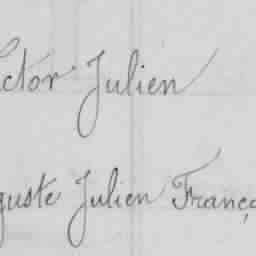 ctor Julien
guste Julien Franç